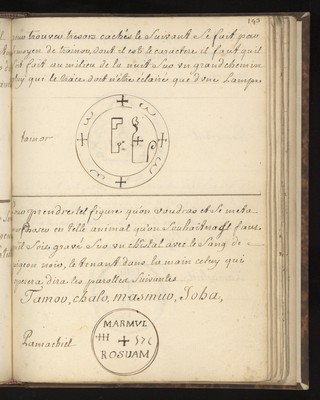 143
pour trouver tresors cachés le Suivant Se fait par
moyen de trainor, dont il est le caractere il faut quil
Soit fait au milieu de la nuit Sur un grand chemin
celuy qui le trace doit n'être éclairé que d'une Lampe
tainor
pour prendre tel figure qu'on voudras et Se meta-
en telle animal qu'on Souhaitera il faut
quil Soit gravé Sur un christal avec le Sang de
pigeon noir, le tenant dans la main celuy qui
dira les parolles Suivantes
Tamou, chalo, masmuo, Joba,
Ramachiel
MARMUL
+
ROSUAM